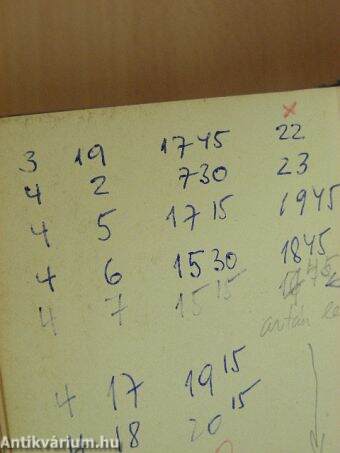 x
3 19 17 45 22
4 2 7 30 23
4 5 17 15 19 45
4 6 15 30 18 45
4 7 15 15 45
4 17 19 15
4 18 20 15
Antikvárium.hu